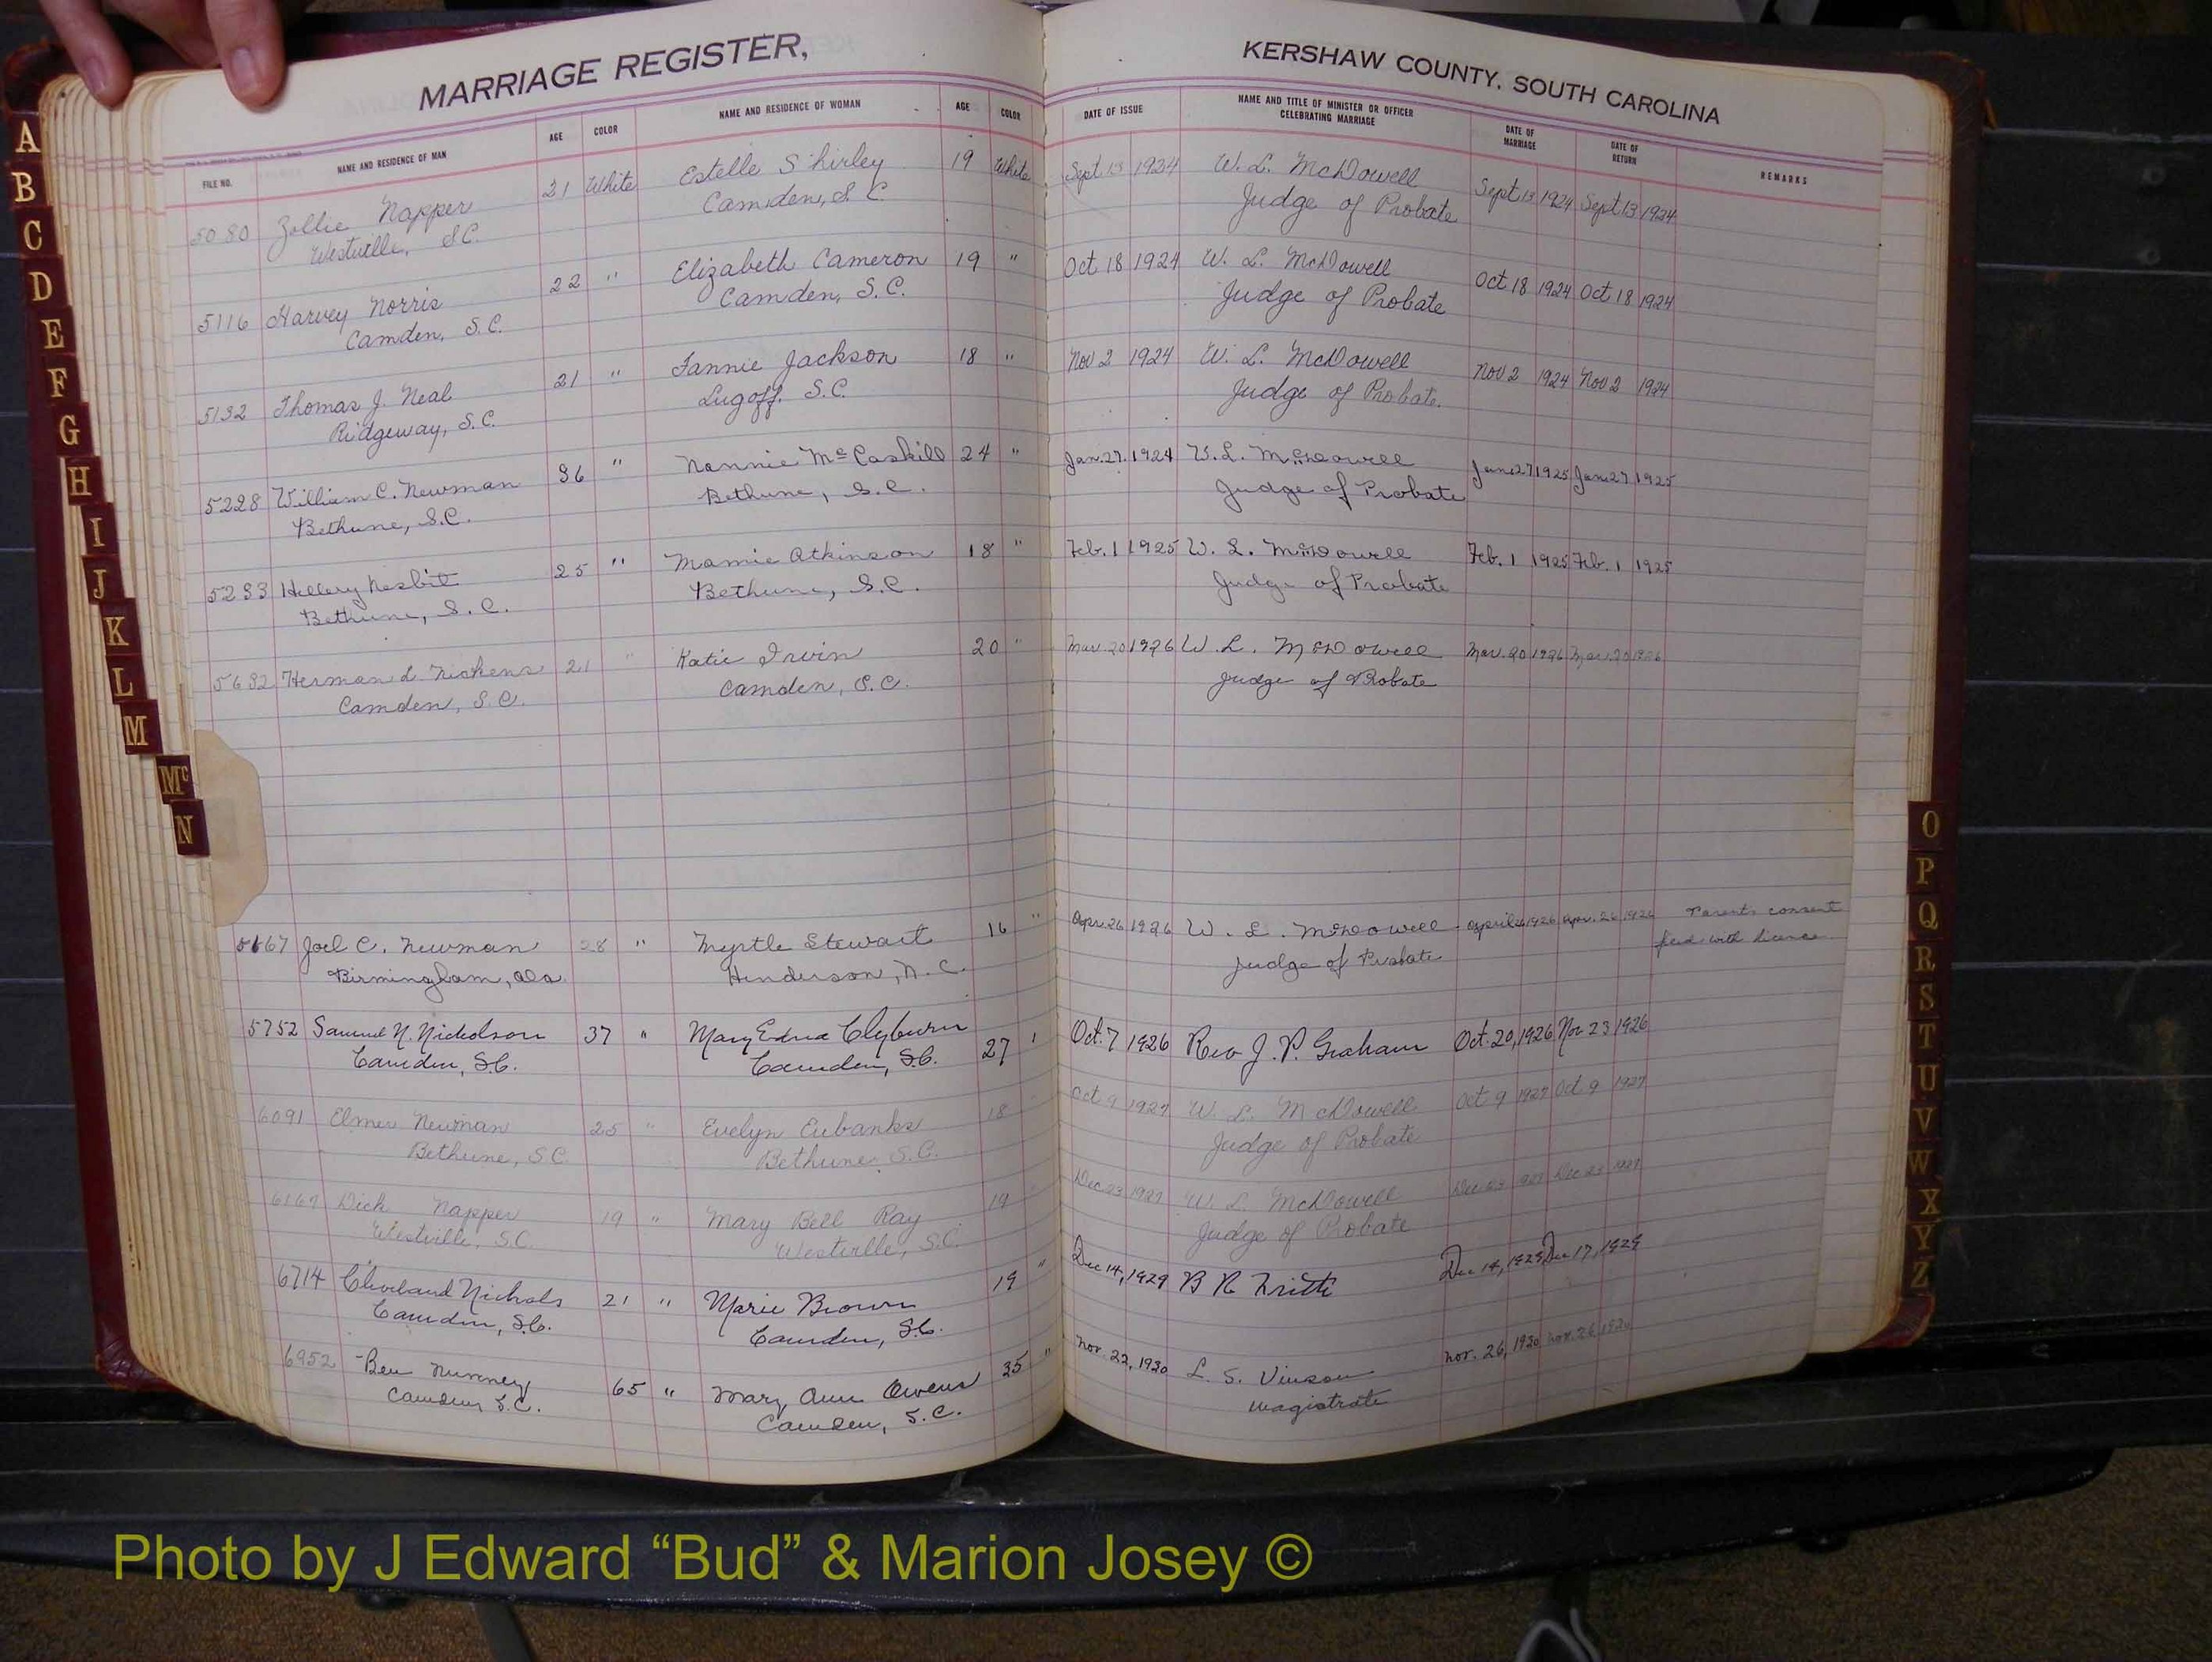 MARRIAGE REGISTER,
KERSHAW COUNTY, SOUTH CAROLINA
FILE NO. NAME AND RESIDENCE OF MAN AGE COLOR NAME AND RESIDENCE OF WOMAN AGE COLOR DATE OF ISSUE NAME AND TITLE OF MINISTER OR OFFICER CELEBRATING MARRIAGE DATE OF MARRIAGE DATE OF RETURN REMARKS
5080 Zollie Napper 21 White Estelle Shirley 19 White Sept 13 1924 W. L. McDowell Sept 13 1924 Sept 13 1924
Westville, S.C. Camden, S C. Judge of Probate
5116 Harvey Norris 22 " Elizabeth Cameron 19 " Oct 18 1924 W. L. McDowell Oct 18 1924 Oct 18 1924
Camden, S.C. Camden, S.C. Judge of Probate
5132 Thomas J. Neal 21 " Fannie Jackson 18 " Nov 2 1924 W. L. McDowell Nov 2 1924 Nov 2 1924
Ridgeway, S.C. Lugoff, S.C. Judge of Probate.
5228 William C. Newman 36 " Nannie McCaskill 24 " Jan. 27. 1924 W. L. McDowell 1925 Jan 27 1925
Bethune, S.C. Bethune, S.C. Judge of Probate
5233 Hillery Nesbit 25 " Mamie Atkinson 18 " Feb. 1 1925 W. L. McDowell Feb. 1 1925 Feb. 1 1925
Bethune, S.C. Bethune, S.C. Judge of Probate
5632 Herman L. Nickens 21 " Katie Irvin 20 " Mar. 20 1926 W. L. McDowell Mar. 20 1926 Mar. 20 1926
Camden, S.C. Camden, S.C. Judge of Probate
Joel C. Newman 28 " Myrtle Stewart 16 " Apr. 26 1926 W. L. McDowell April 26 1926 Apr. 26 1926 Parents consent
Birmingham, Ala. Henderson, N.C. Judge of Probate with license
5752 Samuel N. Nicholson 37 " Mary Edna Clyburn 27 " Oct. 7 1926 Rev J. P. Graham Oct. 20, 1926 Nov 23 1926
Camden, S.C. Camden, S.C.
6091 Elmer Newman 25 " Evelyn Eubanks 18 " Oct 9 1927 W. L. McDowell Oct 9 1927 Oct 9 1927
Bethune, S.C. Bethune, S.C. Judge of Probate
6167 Dick Napper 19 " Mary Bell Ray 19 " Dec 23 1927 W. L. McDowell Dec 23 1927 Dec 23 1927
Westville, S.C. Westville, S.C. Judge of Probate
6714 Cleveland Nichols 21 " Marie Brown 19 " Dec 14, 1929 B R Dec 14, 1929 Dec 17, 1929
Camden, S.C. Camden, S.C.
6952 Ben 65 " Mary Ann Owens 35 " Nov. 22, 1930 L. S. Vinson Nov. 26, 1930 Nov. 26, 1930
Camden, S.C. Camden, S.C. Magistrate
A
B
C
D
E
F
G
H
I
J
K
L
M
Mc
N
O
P
Q
R
S
T
U
V
W
X
Y
Z
Photo by J Edward “Bud” & Marion Josey ©